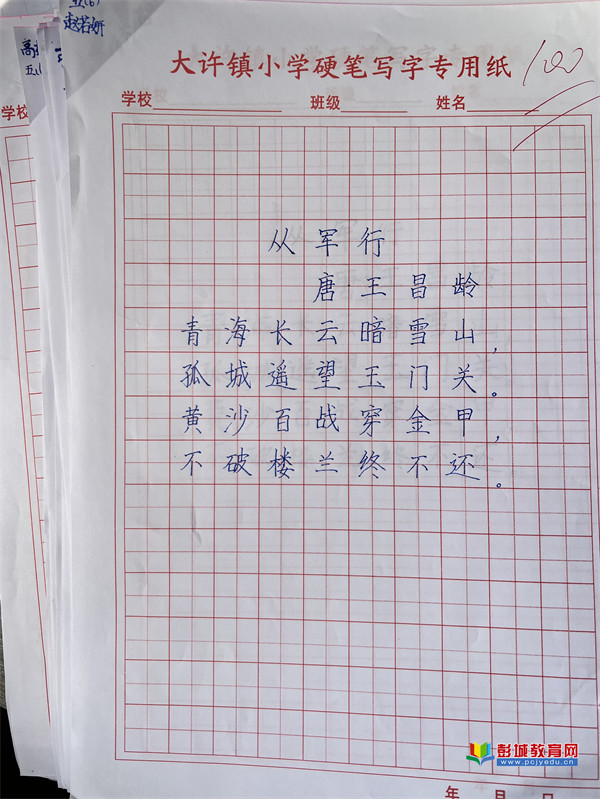 五(6)
赵若妍
五(
大许镇小学硬笔写字专用纸
100
学校 班级 姓名
学校
从军行
唐 王昌龄
青海长云暗雪山，
孤城遥望玉门关。
黄沙百战穿金甲，
不破楼兰终不还。
彭城教育网
www.pcjyedu.cn
年 月 日